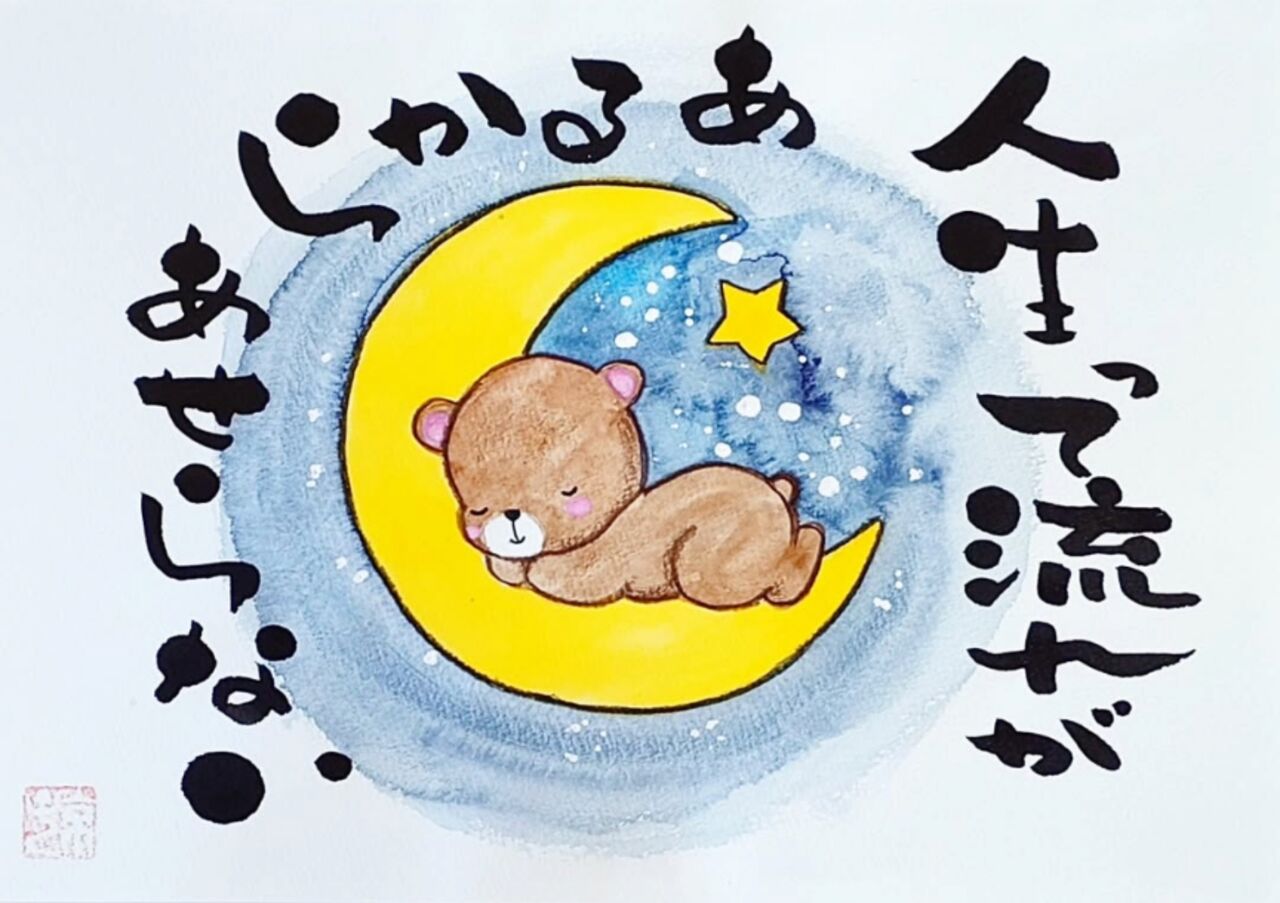 人生って流れが
あるから
あせらない